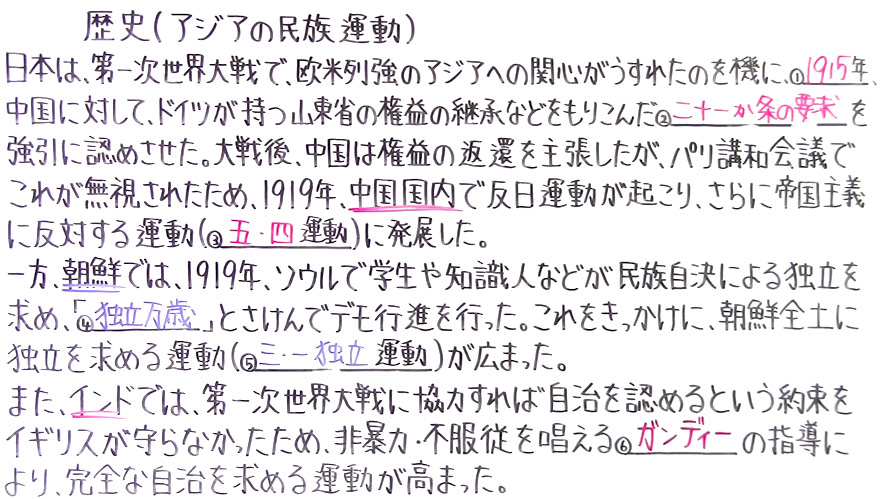 歴史(アジアの民族運動)
日本は、第一次世界大戦で、欧米列強のアジアへの関心がうすれたのを機に、①1915年、
中国に対して、ドイツが持つ山東省の権益の継承などをもりこんだ②二十一か条の要求を
強引に認めさせた。大戦後、中国は権益の返還を主張したが、パリ講和会議で
これが無視されたため、1919年、中国国内で反日運動が起こり、さらに帝国主義
に反対する運動(③五・四運動)に発展した。
一方、朝鮮では、1919年、ソウルで学生や知識人などが民族自決による独立を
求め、「④独立万歳」とさけんでデモ行進を行った。これをきっかけに、朝鮮全土に
独立を求める運動(⑤三・一独立運動)が広まった。
また、インドでは、第一次世界大戦に協力すれば自治を認めるという約束を
イギリスが守らなかったため、非暴力・不服従を唱える⑥ガンディーの指導に
より、完全な自治を求める運動が高まった。